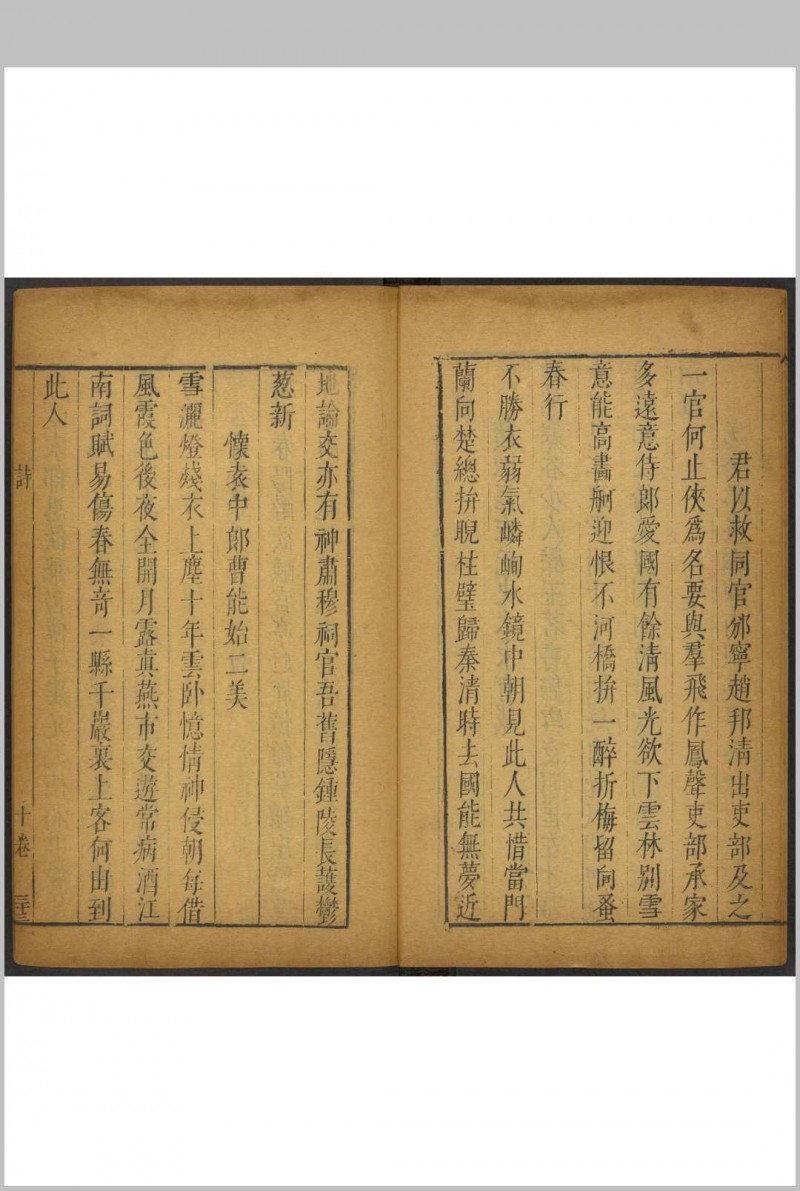 君以救同官邠寧趙邦清出吏部及之
一官何止俠為名要與羣飛作鳳聲吏部承家
多遠意侍郎愛國有餘清風光欲下雲林別雪
意能高畫舸迎恨不河橋拚一醉折梅留向蚤
春行
不勝衣弱氣嶙峋水鏡中朝見此人共惜當門
蘭向楚總拚睨柱璧歸秦清時去國能無夢近
地論交亦有神肅穆祠官吾舊隱鍾陵長護鬱
葱新
懷袁中郎曹能始二美
雪灑燈殘衣上塵十年雲臥憶情神侵朝每借
風霞色後夜全開月露真燕市交遊常病酒江
南詞賦易傷春無奇一縣千巖裏上客何由到
此人
詩
十卷
三十三